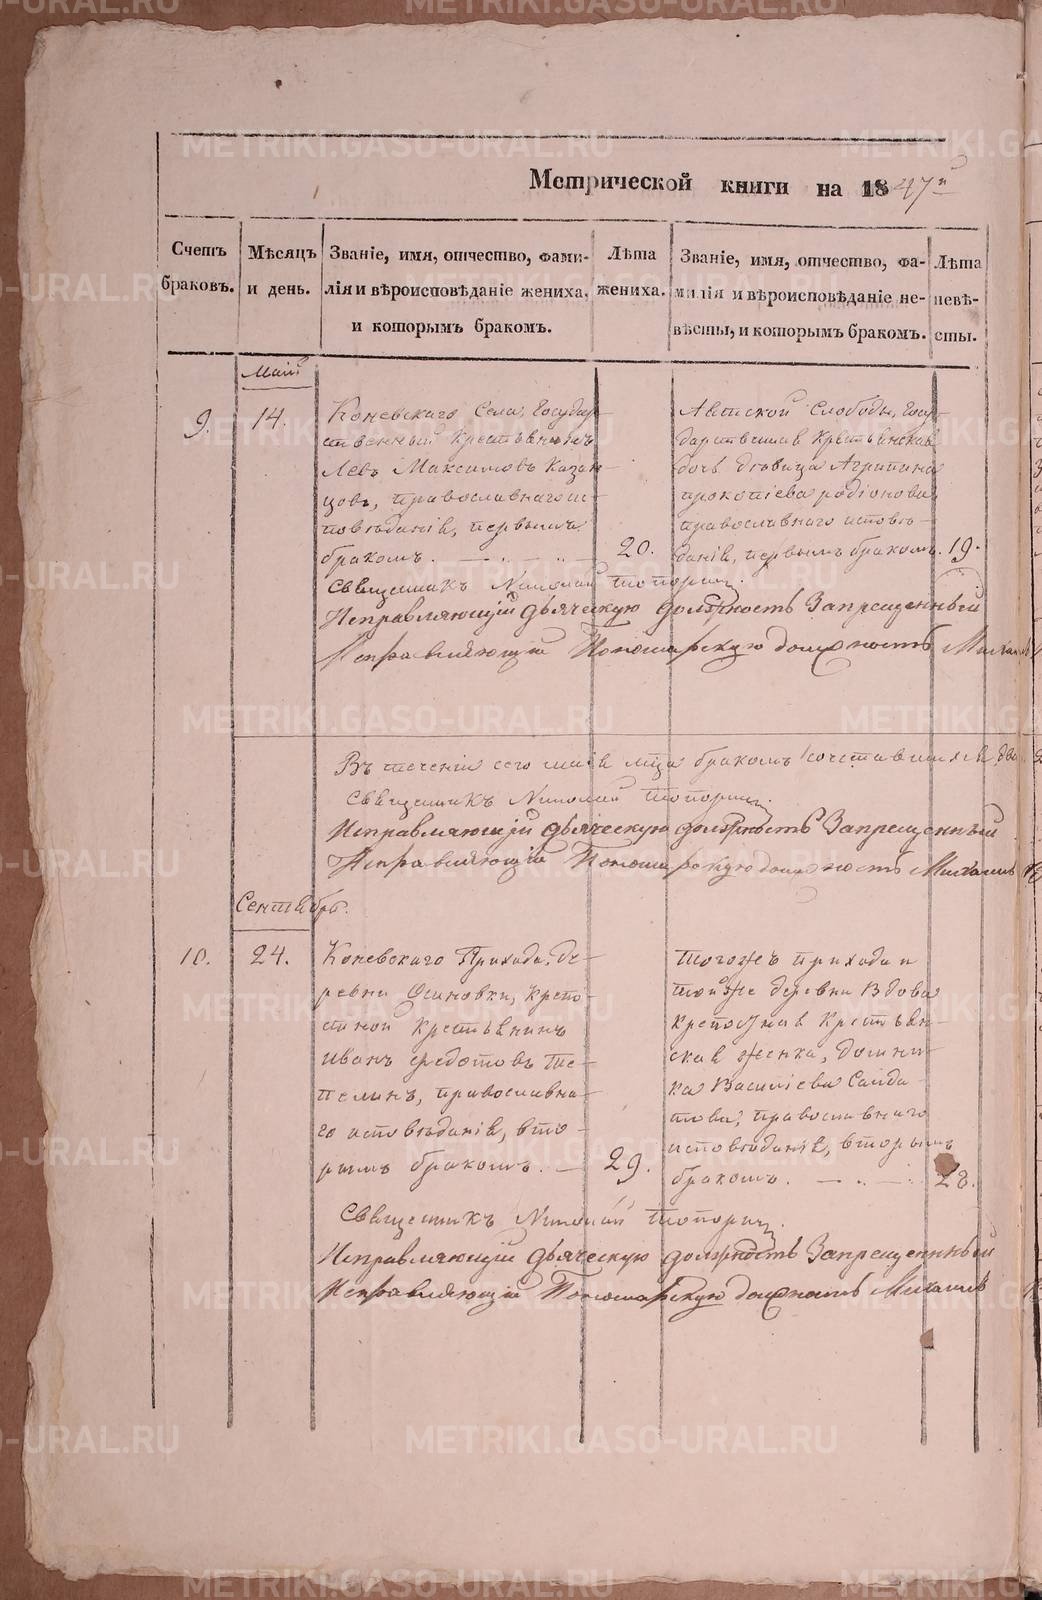 Метрической книги на 1847й
Счетъ браковъ.
Мѣсяцъ и день.
Званіе, имя, отчество, фами-
лія и вѣроисповѣданіе жениха,
и которымъ бракомъ.
Лѣта
жениха.
Званіе, имя, отчество, фа-
милія и вѣроисповѣданіе не-
вѣсты, и которымъ бракомъ.
Лѣта
невѣ-
сты.
Маій
9.
14.
Коневскаго Села, Государ-
ственный крестьянинъ
Левъ Максимовъ Казан-
цовъ, православнаго ис-
повѣданія, первымъ
бракомъ.
20.
Слободы, Госу-
дарственная крестьянская
дочь дѣвица Агрипина
прокопіева родіонова,
православнаго исповѣ-
данія, первымъ бракомъ.
19.
Священникъ Николай Топорин.
Исправляющій дьяческую должность Запрещенный
Исправляющій Пономарскую должность
Въ теченіи сего маія мца бракомъ сочетавшихся два
Священникъ Николай Топорин.
Исправляющій дьяческую должность Запрещенный
Исправляющій Пономарскую должность Михаилъ
Сентябрь.
10.
24.
Коневскаго Прихода, де-
ревни Осиновки, крепо-
стной крестьянинъ
Иванъ Федотовъ Те-
пелинъ, православна-
го исповѣданія, вто-
рымъ бракомъ.
29.
Тогожъ прихода и
тойже деревни вдова
крепостная крестьян-
ская женка, Домни-
ка Васильева Салда-
това, православнаго
исповѣданія, вторымъ
бракомъ.
28.
Священникъ Николай Топорин.
Исправляющій дьяческую должность Запрещенный
Исправляющій Пономарскую должность Михаилъ
METRIKI.GASO-URAL.RU